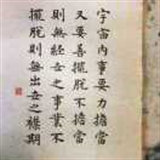 宇宙內事要力擔當
又要善擺脫不擔當
則無經世之事業不
擺脫則無出世之襟期